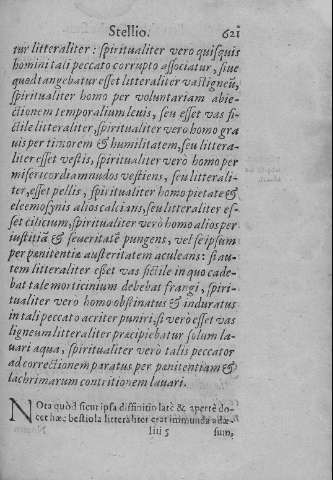 Stellio. 621
tur litteraliter: spiritualiter vero quisquis
homini tali peccato corrupto associatur, siue
quod tangebatur esset litteraliter vas ligneũ,
spiritualiter homo per voluntariam abie-
ctionem temporalium leuis, seu esset vas fi-
ctile litteraliter, spiritualiter verò homo gra
uis per timorem & humilitatem, seu littera-
liter esset vestis, spiritualiter verò homo per
misericordiam nudos vestiens, seu litterali-
ter, esset pellis, spiritualiter homo pietate &
eleemosynis alios calcians, seu litteraliter es-
set cilicium, spiritualiter verò homo alios per
iustitiã & seueritatẽ pungens, vel seipsum
per pœnitentiæ austeritatem aculeans: si au-
tem litteraliter esset vas fictile in quo cade-
bat tale morticinium debebat frangi, spiri-
tualiter verò homo obstinatus & induratus
in tali peccato acriter puniri, si verò esset vas
ligneum litteraliter præcipiebatur solum la-
uari aqua, spiritualiter verò talis peccator
ad correctionem paratus per pœnitentiam &
lachrimarum contritionem lauari.
NOta quòd sicut ipsa diffinitio latè & apertè do-
cet hæc bestiola litteraliter erat immunda adæ-
Iiii 5 sum,